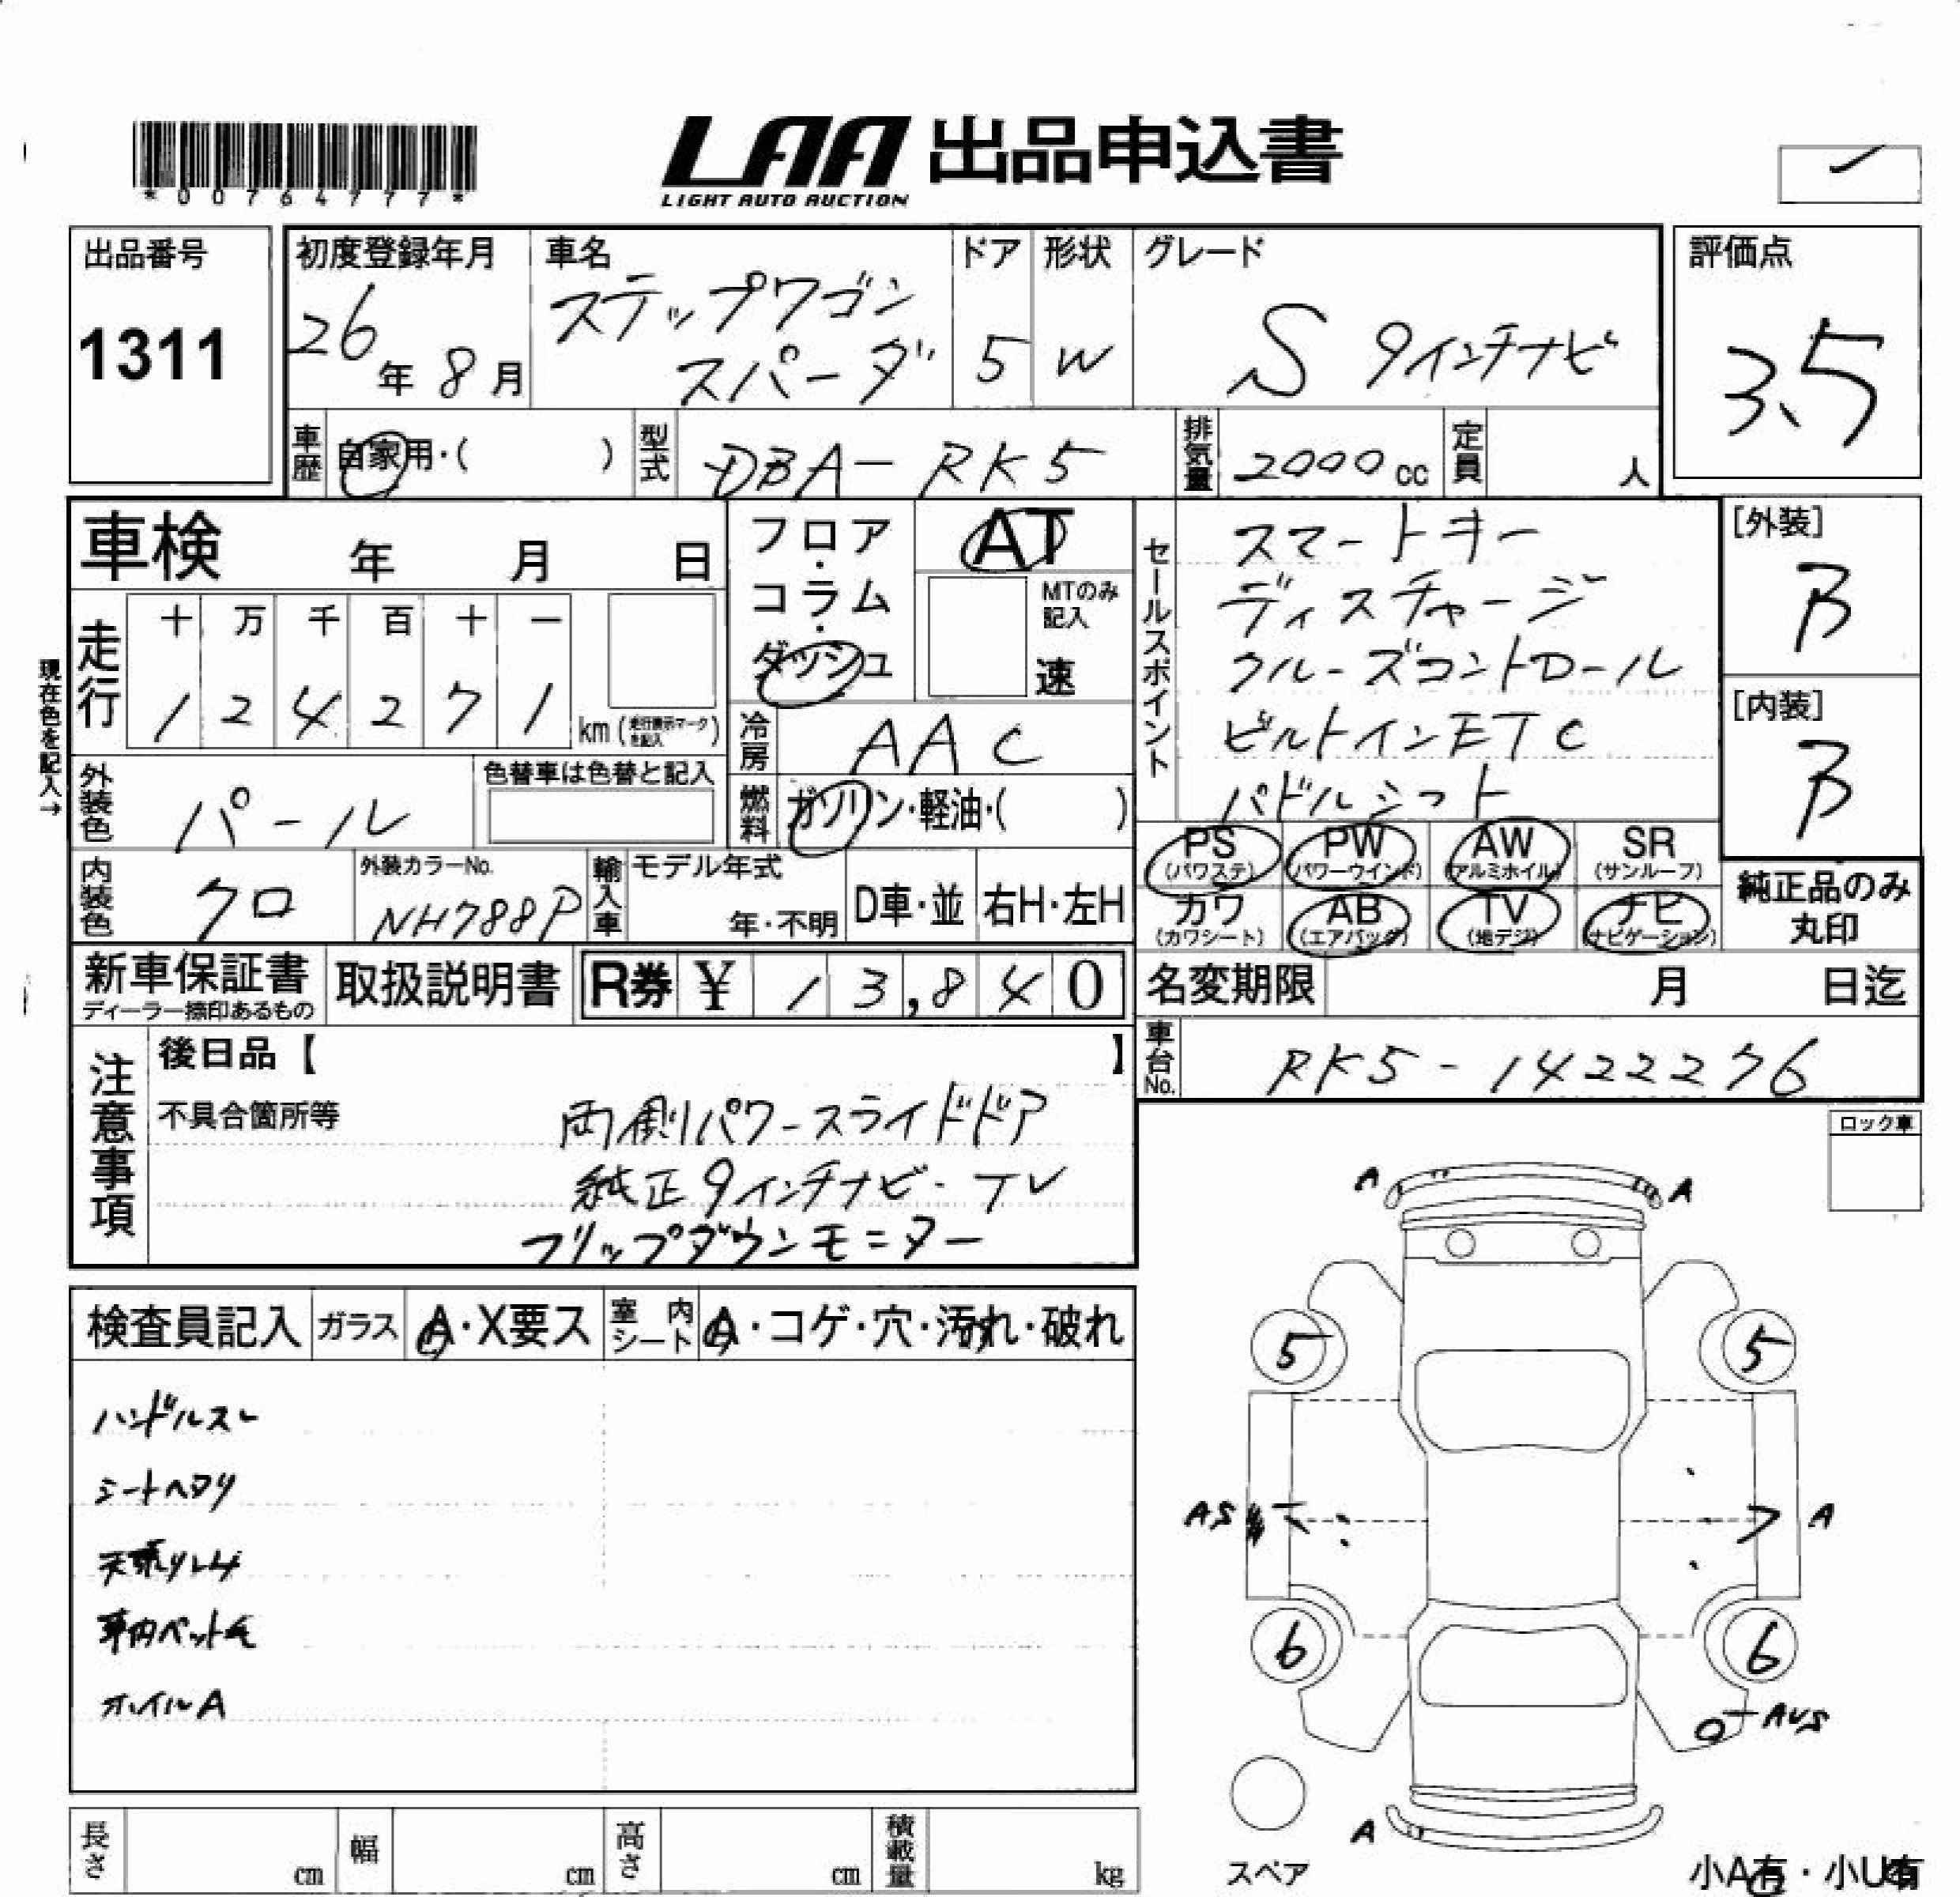 *00764777*
LAA 出品申込書
LIGHT AUTO AUCTION
出品番号
1311
初度登録年月
26年 8月
車名
ステップワゴン
スパーダ
ドア
5
形状
W
グレード
S 9インチナビ
評価点
3.5
車歴
自家用・( )
型式
DBA-RK5
排気量
2000cc
定員
人
車検 年 月 日
フロア・コラム・ダッシュ
AT
MTのみ記入
速
セールスポイント
スマートキー
ディスチャージ
クルーズコントロール
ビルトインETC
パドルシフト
[外装]
B
[内装]
B
現在色を記入→
走行
十 万 千 百 十 一
1 2 4 2 7 1
km (走行表示マークを記入)
冷房
AAC
外装色
パール
色替車は色替と記入
燃料
ガソリン・軽油・( )
PS (パワステ)
PW (パワーウインド)
AW (アルミホイル)
SR (サンルーフ)
カワ (カワシート)
AB (エアバッグ)
TV (地デジ)
ナビ (ナビゲーション)
純正品のみ
丸印
内装色
クロ
外装カラーNo.
NH788P
輸入車
モデル年式
年・不明
D車・並
右H・左H
新車保証書
ディーラー捺印あるもの
取扱説明書
R券 ¥ 13,840
名変期限 月 日迄
車台No.
RK5-1422276
注意事項
後日品【 】
不具合箇所等
両側パワースライドドア
純正9インチナビ・TV
フリップダウンモニター
ロック車
検査員記入
ガラス
A・X要ス
室内シート
A・コゲ・穴・汚れ・破れ
ハンドルスレ
シートヘタリ
天張りシミ
車内ペット毛
ホイルA
A
A
5
5
AS
A
6
6
AUS
A
スペア
小A有・小U有
長さ cm
幅 cm
高さ cm
積載量 kg